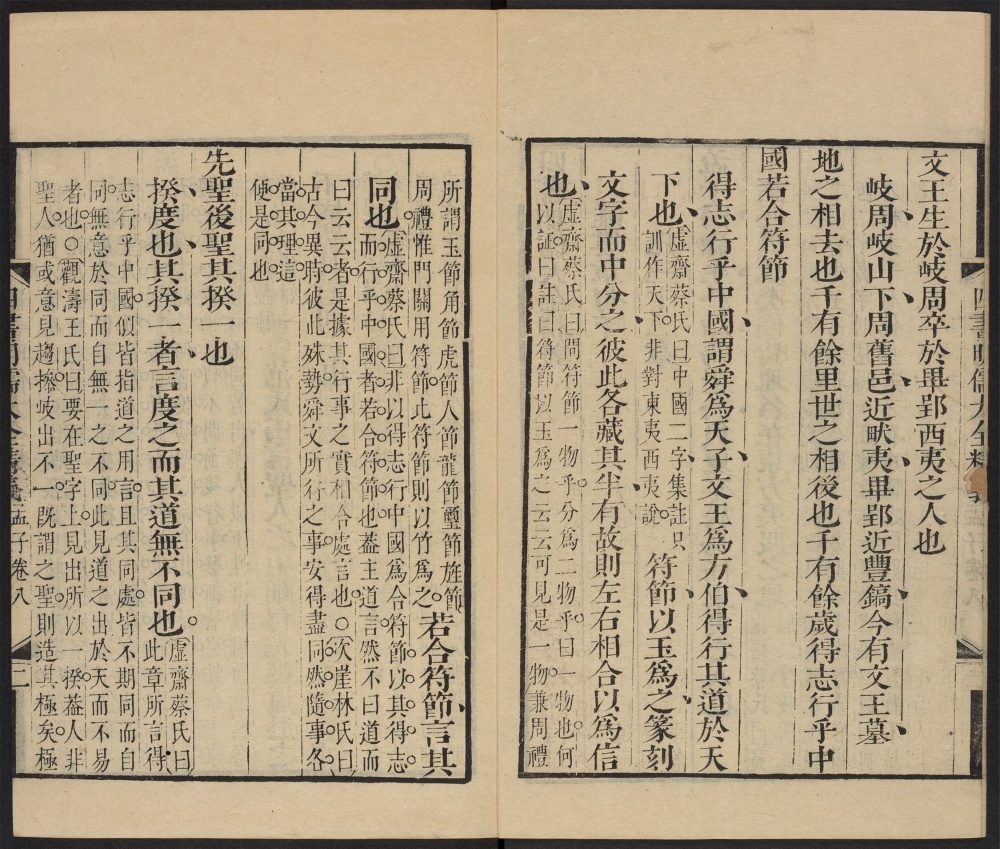 文王生於岐周卒於畢郢西夷之人也
岐周岐山下周舊邑近畎夷畢郢近豐鎬今有文王墓
地之相去也千有餘里世之相後也千有餘歲得志行乎中
國若合符節
得志行乎中國謂舜爲天子文王爲方伯得行其道於天
下也虛齋蔡氏曰中國二字集註只
訓作天下非對東夷西夷說符節以玉爲之篆刻
文字而中分之彼此各藏其半有故則左右相合以爲信
也虛齋蔡氏曰問符節一物乎分爲二物乎曰一物也何
以証曰註曰符節以玉爲之云云可見是一物兼周禮
所謂玉節角節虎節人節龍節璽節旌節
周禮惟門關用符節此符節則以竹爲之若合符節言其
同也虛齋蔡氏曰非以得志行中國爲合符節以其得志
而行乎中國者若合符節也葢主道言然不曰道而
曰云云者是據其行事之實相合處言也○次崖林氏曰
古今異時彼此殊勢舜文所行之事安得盡同然隨事各
當其理這
便是同也
先聖後聖其揆一也
揆度也其揆一者言度之而其道無不同也虛齋蔡氏曰
此章所言得
志行乎中國似皆指道之用言且其同處皆不期同而自
同無意於同而自無一之不同此見道之出於天而不易
者也○觀濤王氏曰要在聖字上見出所以一揆葢人非
聖人猶或意見趨操岐出不一既謂之聖則造其極矣極
孟子卷八
二